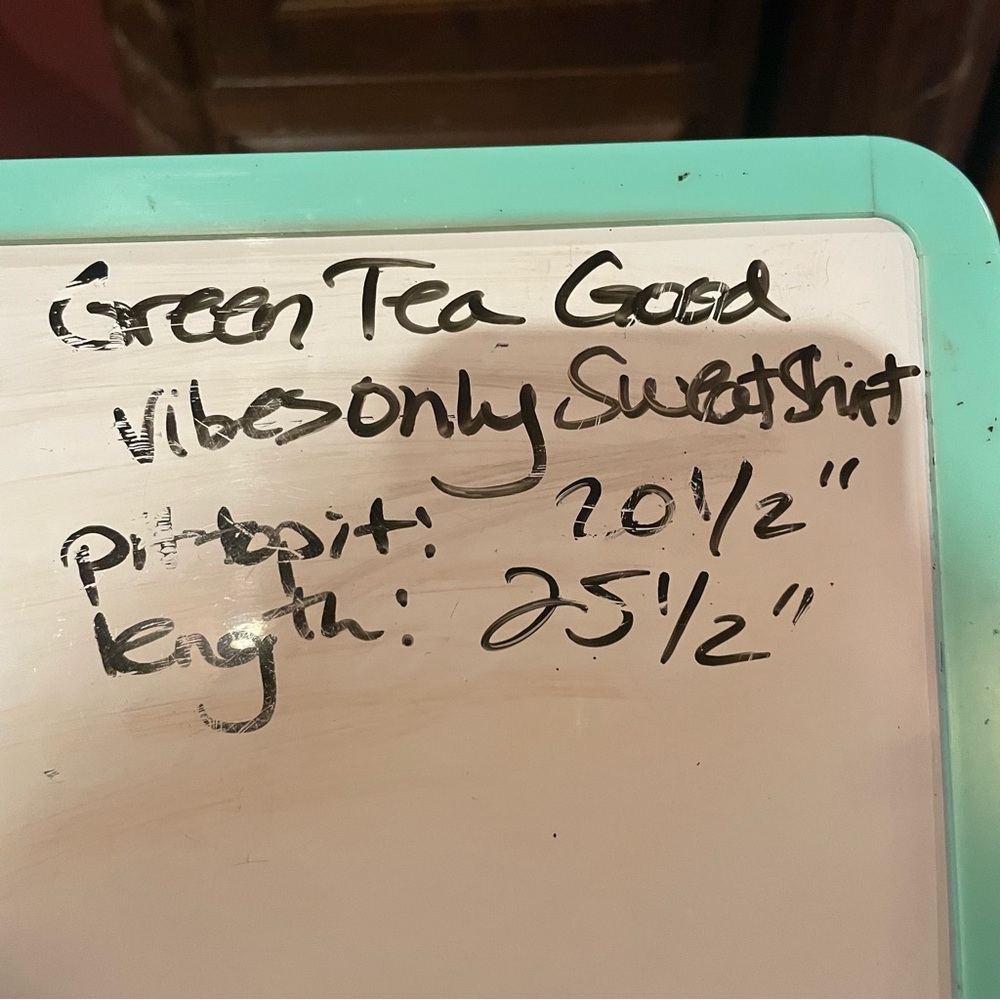 Green Tea Good
Vibes only Sweatshirt
pit to pit: 20 1/2"
length: 25 1/2"